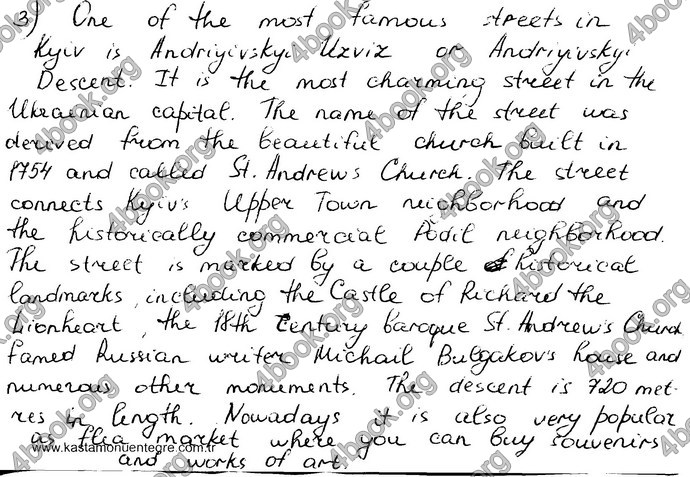 3) One of the most famous streets in
Kyiv is Andriyivskyi Uzviz or Andriyivskyi
Descent. It is the most charming street in the
Ukrainian capital. The name of the street was
derived from the beautiful church built in
1754 and called St. Andrew's Church. The street
connects Kyiv's Upper Town neighborhood and
the historically commercial Podil neighborhood.
The street is marked by a couple of historical
landmarks, including the Castle of Richard the
Lionheart, the 18th century baroque St. Andrew's Church
famed Russian writer Michail Bulgakov's house and
numerous other monuments. The descent is 720 met-
res in length. Nowadays it is also very popular
as flea market where you can buy souvenirs
www.kastamonuentegre.com.tr
and works of art.
4book.org